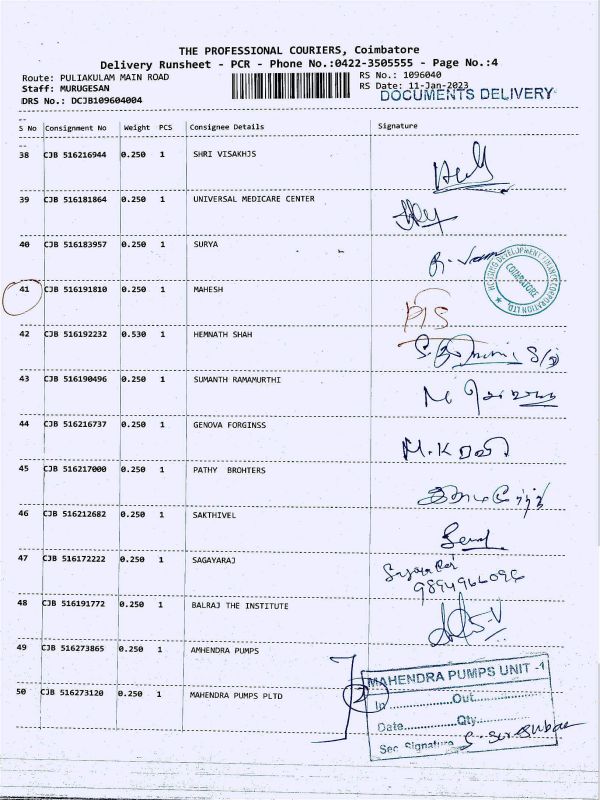 THE PROFESSIONAL COURIERS, Coimbatore
Delivery Runsheet - PCR - Phone No.:0422-3505555 - Page No.:4
Route: PULIAKULAM MAIN ROAD
RS No.: 1096040
Staff: MURUGESAN
RS Date: 11-Jan-2023
DRS No.: DCJB109604004
DOCUMENTS DELIVERY
S No Consignment No Weight PCS Consignee Details Signature
38 CJB 516216944 0.250 1 SHRI VISAKHJS
39 CJB 516181864 0.250 1 UNIVERSAL MEDICARE CENTER
40 CJB 516183957 0.250 1 SURYA
HOUSING DEVELOPMENT FINANCE CORPORATION LTD.
COIMBATORE
41 CJB 516191810 0.250 1 MAHESH
42 CJB 516192232 0.530 1 HEMNATH SHAH
43 CJB 516190496 0.250 1 SUMANTH RAMAMURTHI
44 CJB 516216737 0.250 1 GENOVA FORGINSS
45 CJB 516217000 0.250 1 PATHY BROHTERS
46 CJB 516212682 0.250 1 SAKTHIVEL
47 CJB 516172222 0.250 1 SAGAYARAJ
48 CJB 516191772 0.250 1 BALRAJ THE INSTITUTE
49 CJB 516273865 0.250 1 AMHENDRA PUMPS
50 CJB 516273120 0.250 1 MAHENDRA PUMPS PLTD
2
MAHENDRA PUMPS UNIT -1
In..............Out..............
Date..............Qty..............
Sec. Signature